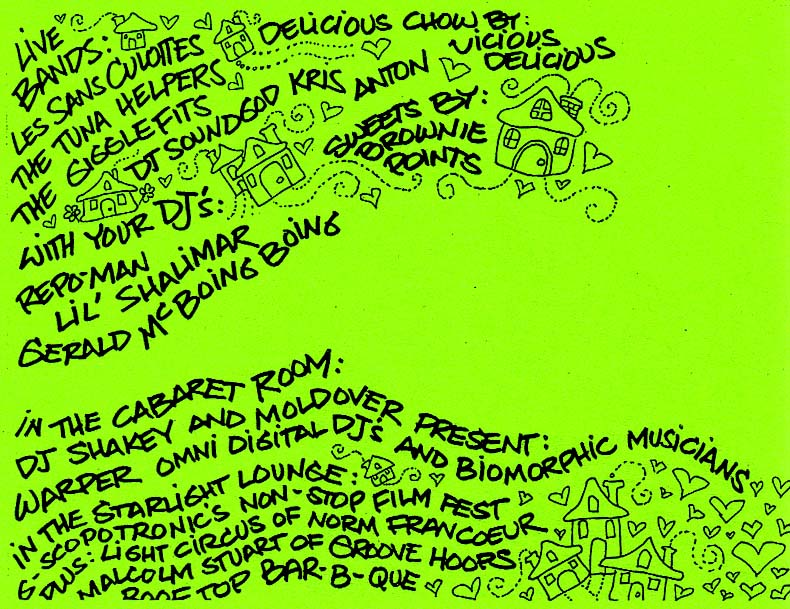 LIVE
BANDS:
LES SANS CULOTTES
THE TUNA HELPERS
THE GIGGLEFITS
DJ SOUNDGOD KRIS ANTON
DELICIOUS CHOW BY:
VICIOUS
DELICIOUS
SWEETS BY:
BROWNIE
POINTS
WITH YOUR DJ'S:
REPO-MAN
LIL' SHALIMAR
GERALD McBOING BOING
IN THE CABARET ROOM:
DJ SHAKEY AND MOLDOVER PRESENT:
WARPER OMNI DIGITAL DJ'S AND BIOMORPHIC MUSICIANS
IN THE STARLIGHT LOUNGE:
G-SCOPOTRONICS NON-STOP FILM FEST
PLUS: LIGHT CIRCUS OF NORM FRANCOEUR
MALCOLM STUART OF GROOVE HOOPS
ROOFTOP BAR-B-QUE